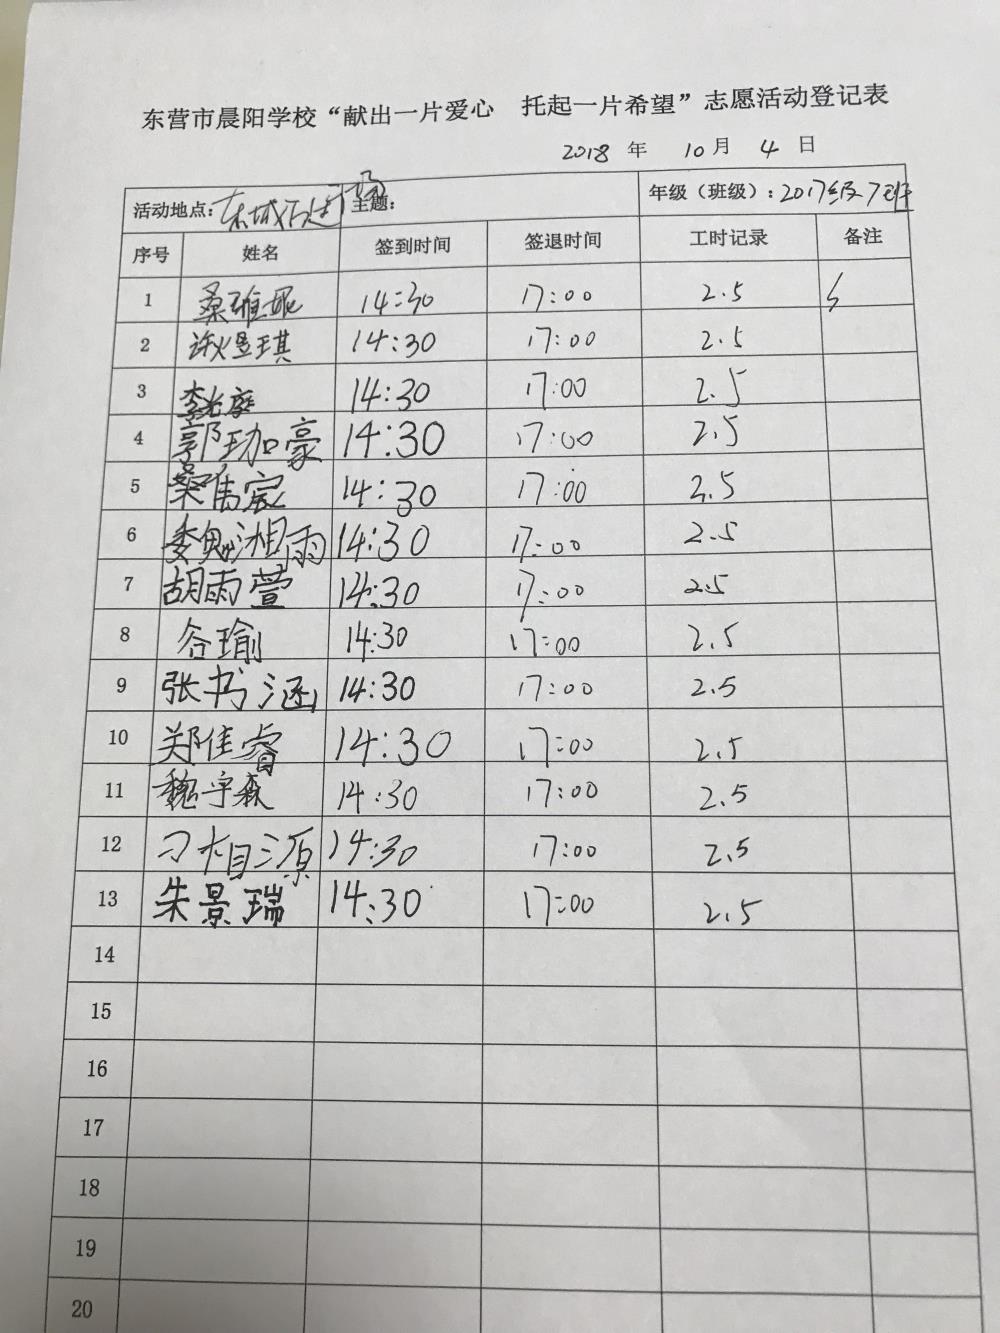 东营市晨阳学校“献出一片爱心 托起一片希望”志愿活动登记表
2018 年 10 月 4 日
活动地点：东城 主题： 年级（班级）：2017级7班
序号 姓名 签到时间 签退时间 工时记录 备注
1 桑雅妮 14:30 17:00 2.5
2 许煜琪 14:30 17:00 2.5
3 李 14:30 17:00 2.5
4 郭珈豪 14:30 17:00 2.5
5 桑隽宸 14:30 17:00 2.5
6 魏湘雨 14:30 17:00 2.5
7 胡雨萱 14:30 17:00 2.5
8 谷瑜 14:30 17:00 2.5
9 张书涵 14:30 17:00 2.5
10 郑佳睿 14:30 17:00 2.5
11 魏宇森 14:30 17:00 2.5
12 刁相源 14:30 17:00 2.5
13 朱景瑞 14:30 17:00 2.5
14
15
16
17
18
19
20